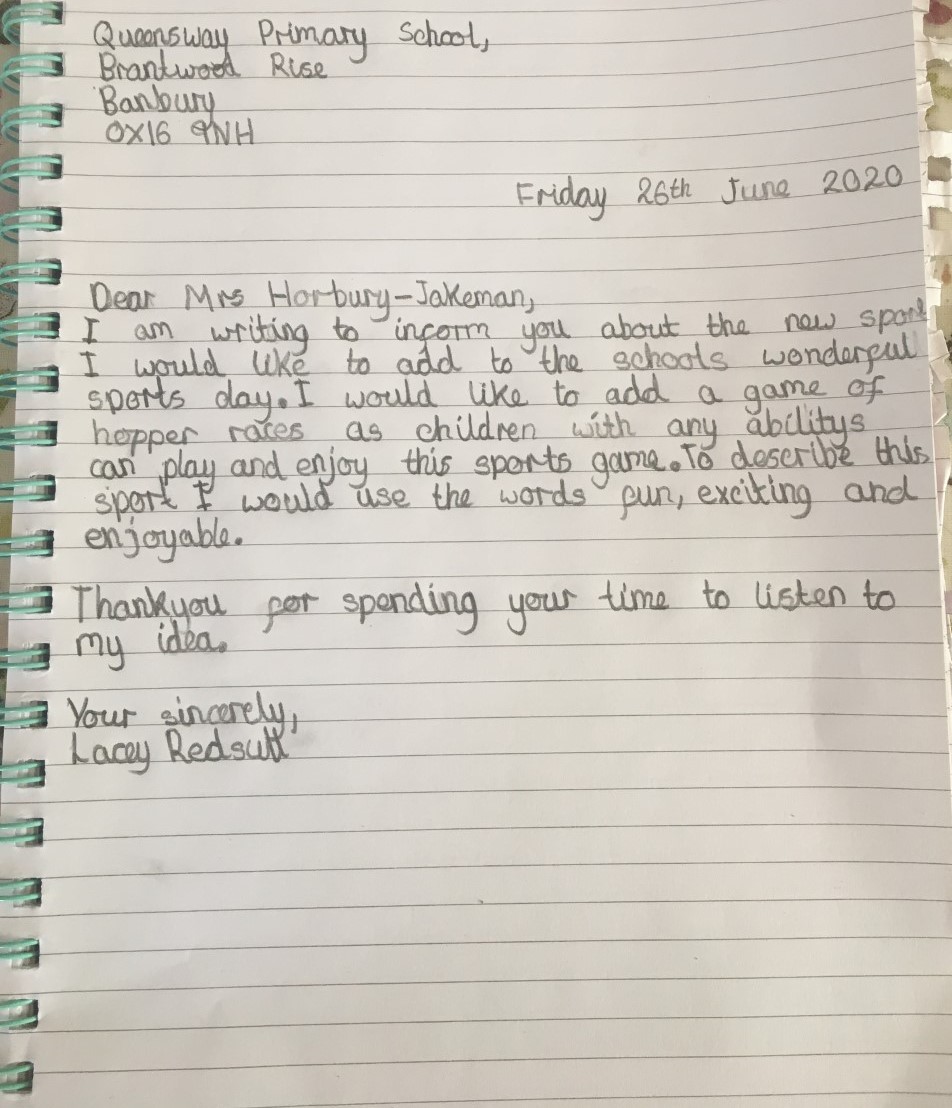 Queensway Primary School,
Brantwood Rise
Banbury
OX16 9NH
Friday 26th June 2020
Dear Mrs Horbury-Jakeman,
I am writing to inform you about the new sport
I would like to add to the schools wonderful
sports day. I would like to add a game of
hopper races as children with any abilitys
can play and enjoy this sports game. To describe this
sport I would use the words fun, exciting and
enjoyable.
Thankyou for spending your time to listen to
my idea.
Your sincerely,
Lacey